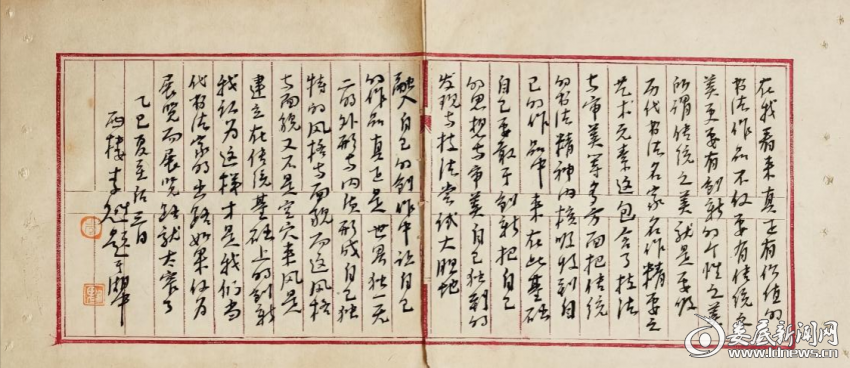 在我看来真正有价值的
书法作品不仅要有传统之
美更要有创新的个性之美
所谓传统之美就是要吸
历代书法名家名作精要之
艺术元素这包含了技法
与审美等多方面把传统
的书法精神内核吸收到自
己的作品中来在此基础
自己要敢于创新把自己
的思想与审美自己独到的
发现与技法尝试大胆地
融入自己的创作中让自己
的作品真正是世界独一无
二的外形与内质形成自己独
特的风格与面貌而这风格
与面貌又不是空穴来风是
建立在传统基础上的创新
我认为这样才是我们当
代书法家的出路如果仅为
展览而展览路就太窄了
乙巳夏至后三日
雨楼李 题于湘中
娄底新闻网
www.ldnews.cn